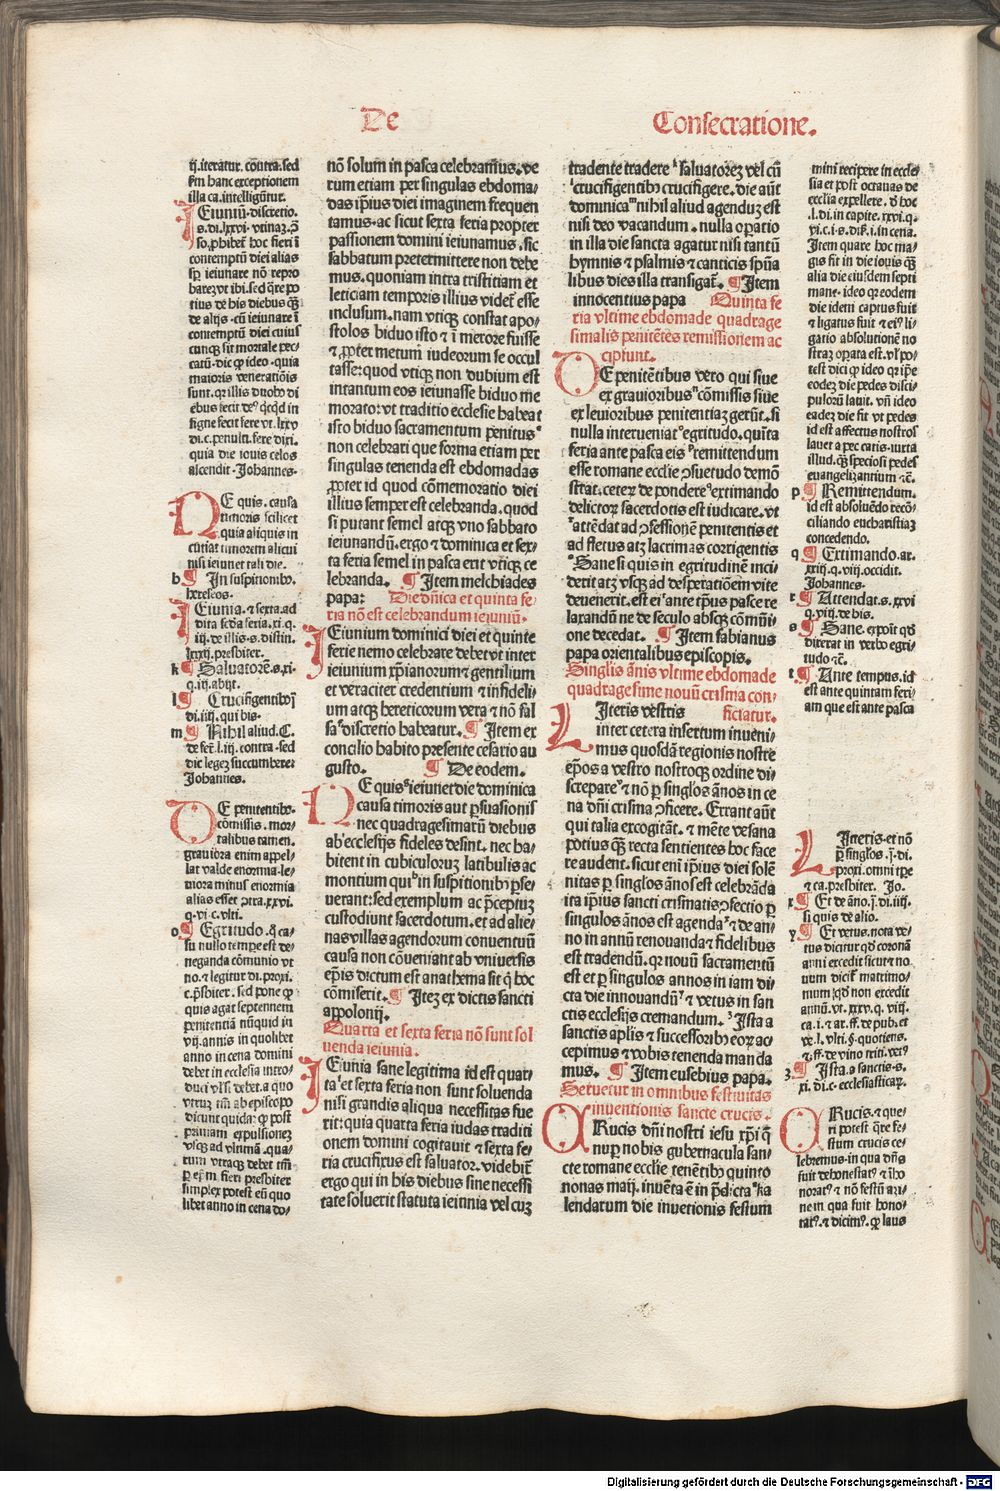 De
Consecratione.
ij.iteratur. cōntra.sed
ßm hanc exceptionem
illa ca.intelligūtur.
Ieiuniū.discretio.
s.di.lxxvi.vtinaʒ.
so.phibet hoc fieri ī
contemptū diei alias
sꝑ ieiunare nō repro
tius de his diebus
de alijs.cū ieiunare ī
contemptū diei cuius
cunqꝫ sit mortale pec/
catū.dic ꝙ ideo.quia
maioris venerationis
quia die iouis celos
ascendit.Johannes.
NE quis.causa
timoris scilicet
quia aliquis in
cutiat timorem alicui
nisi ieiunet tali die.
h ¶ In suspitionibꝰ.
hereseos.
Ieiunia.⁊ sexta.ad
dita scďa feria.xi.q.
iij.de illis.s.distin.
lxxij.presbiter.
k ¶ Saluatorē.s.xi.
q.iij.abijt.
l ¶ Crucifigentibꝰ
di.iiij.qui bis.
m ¶ Nihil aliud.C.
de fer̄.l.iij.contra.sed
dic legeʒ succumbere
Johannes.
DE penitentibꝰ.
cōmissis.mor/
talibus tamen.
grauiora enim appel/
lat valde enormia.le/
uiora minus enormia
alias esset ꝯtra.xxvi.
q.vi.c.vlti.
o ¶ Egritudo.
su nullo tempe est de/
neganda cōmunio vt
no.⁊ legitur di.proxi.
c.pšbiter.sed pone ꝙ
quis agat septennem
penitentiā nūquid in
vij.annis in quolibet
anno in cena domini
debet in ecclesia intro/
duci vl's.debet.a quo
vtrum tn̄ ab episcopo
dicunt quidā.ꝙ post
primam expulsioneʒ
vsqꝫ ad vltimā.qua/
rum vtraqꝫ debet tm̄
ꝑ ep̄m fieri presbiter
simplex potest eū quo
libet anno in cena do/
nō solum in pasca celebramus.ve
rum etiam per singulas ebdoma/
das ipsius diei imaginem frequen
tamus.ac sicut sexta feria propter
passionem domini ieiunamus.sic
sabbatum pretermittere non debe
mus.quoniam intra tristitiam et
leticiam temporis illius videt̄ esse
inclusum.nam vtiqꝫ constat apo/
stolos biduo isto ⁊ ī merore fuisse
⁊ ꝓpter metum iudeorum se occul
tasse:quod vtiqꝫ non dubium est
intantum eos ieiunasse biduo me
morato:vt traditio ecclesie habeat
isto biduo sacramentum penitus
non celebrari que forma etiam per
singulas tenenda est ebdomadas
ꝓpter id quod cōmemoratio diei
illius semper est celebranda.quod
si putant semel atqꝫ vno sabbato
ieiunandū.ergo ⁊ dominica et sex/
ta feria semel in pasca erit vtiqꝫ ce
lebranda. ¶ Item melchiades
papa: Die dn̄ica et quinta fe/
ria nō est celebrandum ieiuniū.
IEiunium dominici diei et quinte
ferie nemo celebrare debet vt inter
ieiunium xp̄ianorum ⁊ gentilium
et veraciter credentium ⁊ infideli/
um atqꝫ hereticorum vera ⁊ nō fal
sa discretio habeatur. ¶ Item ex
concilio habito presente cesario au
gusto. ¶ De eodem.
NE quis ieiunet die dominica
causa timoris aut ꝑsuasionis
nec quadragesimarū diebus
ab ecclesijs fideles desint.nec ha/
bitent in cubiculoruʒ latibulis ac
montium qui in suspitionibꝰ ꝑse/
uerant:sed exemplum ac p̄ceptuʒ
custodiunt sacerdotum.et ad alie/
nas villas agendorum conuentuū
causa non cōueniant ab vniuersis
ep̄is dictum est anathema sit q̄ hoc
cōmiserit. ¶ Iteʒ ex dictis sancti
appolonij.
Quarta et sexta feria nō sunt sol
uenda ieiunia.
IEiunia sane legitima id est quar/
ta et sexta feria non sunt soluenda
nisi grandis aliqua necessitas fue
rit:quia quarta feria iudas traditi
onem domini cogitauit ⁊ sexta fe/
ria crucifixus est saluator.videbit̄
ergo qui in his diebus sine necessi
tate soluerit statuta ieiunia vel cuʒ
tradente tradere saluatoreʒ vel cū
crucifigentibꝰ crucifigere.die aūt
dominica nihil aliud agenduʒ est
nisi deo vacandum.nulla oꝑatio
in illa die sancta agatur nisi tantū
hymnis ⁊ psalmis ⁊ canticis spūa
libus dies illa transigat̄. ¶ Item
innocentius papa Quinta fe
ria vltime ebdomade quadrage
simalis penitētes remissionem ac
cipiunt.
DE penitētibus vero qui siue
ex grauioribus cōmissis siue
ex leuioribus penitentiaʒ gerūt.si
nulla interueniat egritudo.quīta
feria ante pasca eis remittendum
esse romane ecclīe ꝯsuetudo demō
strat.ceteꝝ de pondere extimando
delictoꝝ sacerdotis est iudicare.vt
attēdat ad ꝯfessionē penitentis et
ad fletus atqꝫ lacrimas corrigentis
Sane si quis in egritudinē inci/
derit atqꝫ vsqꝫ ad desperatiōem vite
deuenerit.est ei ante tp̄us pasce re
laxandū ne de seculo absqꝫ cōmūi/
one decedat. ¶ Item fabianus
papa orientalibus episcopis.
Singlis ānis vltime ebdomade
quadragesime nouū crisma con/
ficiatur.
LIteris vestris
inter cetera insertum inueni/
mus quosdā regionis nostre
ep̄os a vestro nostroqꝫ ordine di/
screpare ⁊ nō ꝑ singlos ānos in ce
na dn̄i crisma ꝯficere.Errant aūt
qui talia excogitāt.⁊ mēte vesana
potius qꝫ recta sentientes hoc face
re audent.sicut eni ipsius diei solē
nitas ꝑ singlos āños est celebrāda
ita ipsius sancti crismatis ꝯfectio ꝑ
singulos ānos est agenda ⁊ de an/
no in annū renouanda ⁊ fidelibus
est tradendū.qꝛ nouū sacramentū
est et ꝑ singulos annos in iam di/
cta die innouandū ⁊ vetus in san
ctis ecclesijs cremandum. Ista a
sanctis aplīs ⁊ successoribꝰ eoꝝ ac/
cepimus ⁊ vobis tenenda manda
mus. ¶ Item eusebius papa.
Seruetur in omnibus festiuitas
inuentionis sancte crucis.
CRucis dn̄i nostri iesu xp̄i q̄
nuꝑ nobis gubernacula san/
cte romane ecclīe tenētibꝰ quinto
nonas maij.inuēta ē in p̄dicta ka
lendarum die inuētionis festum
mini recipere in eccle
sia et post octauas de
ecclīa expellere.
.l.di.in capite.xxvi.q.
vi.c.i.s.dist.i.in cena.
Item quare hoc ma/
gis fit in die iouis qꝫ
alia die eiusdem septi
mane.ideo qꝛ eodem
die idem captus fuit
⁊ ligatus fuit ⁊ eiꝰ li/
gatio absolutionē no
straʒ oꝑata est.vl' po/
test dici ꝙ ideo qꝛ ip̄e
eodeʒ die pedes disci/
puloꝝ lauit.vn̄ ideo
eadeʒ die fit vt pedes
id est affectus nostros
lauet a peccatis.iuxta
illud.qꝫ speciosi pedes
euangelizantium ⁊c̄.
p ¶ Remittendum.
id est absoluēdo recō/
ciliando eucharistiaʒ
concedendo.
q ¶ Extimando.ar.
xxiij.q.viij.occidit.
Johannes.
r ¶ Attendat.s.xxvi
q.viij.de his.
s ¶ Sane.exponit ꝙ
dixerat in verbo egri/
tudo ⁊c̄.
t ¶ Ante tempus.id
est ante quintam feri/
am que est ante pasca
LIteris.et nō
ꝑ singlos.j.di.
proxi.omni tꝑe
⁊ ca.presbiter. Jo.
x ¶ Et de āno.j.di.iiij.
si quis de alio.
y ¶ Et vetus.nota ve/
tus dicitur ꝙ coronā
anni excedit sicut ⁊ no
uum dicit̄ matrimo/
mum ꝙ non excedit
annū.vt.xxv.q.viij.
ca.i.⁊ ar.ff.de pub.et
ve.l.vlti.§.quotiens.
⁊.ff.de vino triti.verꝰ
z ¶ Ista.a sanctis.s.
xi.di.c.ecclesiasticaꝝ.
CRucis.⁊ que/
ri potest q̄re fe/
stum crucis ce/
lebremus.in qua dn̄s
fuit dehonestatꝰ ⁊ īho
noratꝰ.⁊ nō festū asi/
ne in qua fuit hono/
ratꝰ.⁊ dicimꝰ.ꝙ laus
Digitalisierung gefördert durch die Deutsche Forschungsgemeinschaft - DFG